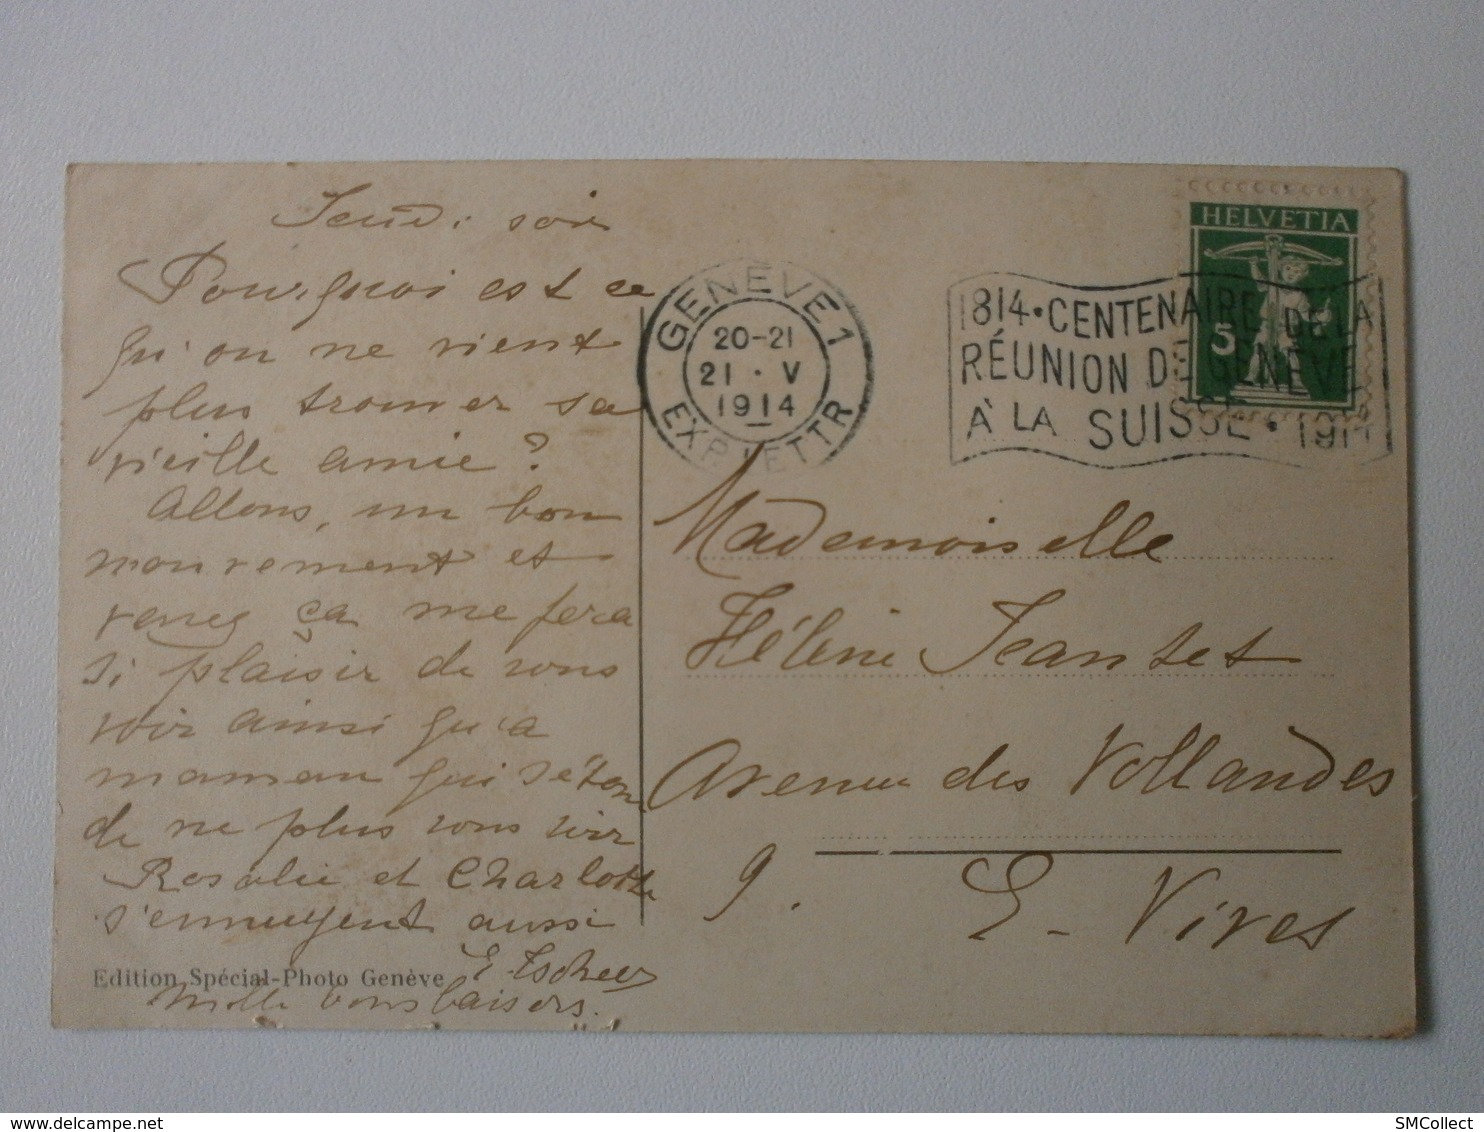 Jeudi soir
Pourquoi est ce
qu'on ne vient
plus trouver sa
vieille amie?
Allons, un bon
mouvement et
venez ça me fera
si plaisir de vous
voir ainsi qu'à
maman qui s'éton
de ne plus vous voir
Rosalie et Charlotte
s'ennuyent aussi
Edition Spécial-Photo Genève
Mille bons baisers.
GENÈVE 1
20-21
21 · V
1914
EXP. LETTR
1814 · CENTENAIRE DE LA
RÉUNION DE GENÈVE
À LA SUISSE · 1914
HELVETIA
5
Mademoiselle
Hélène Jeantet
Avenue des Vollandes
9.
E-Vives
www.delcampe.net
SMCollect